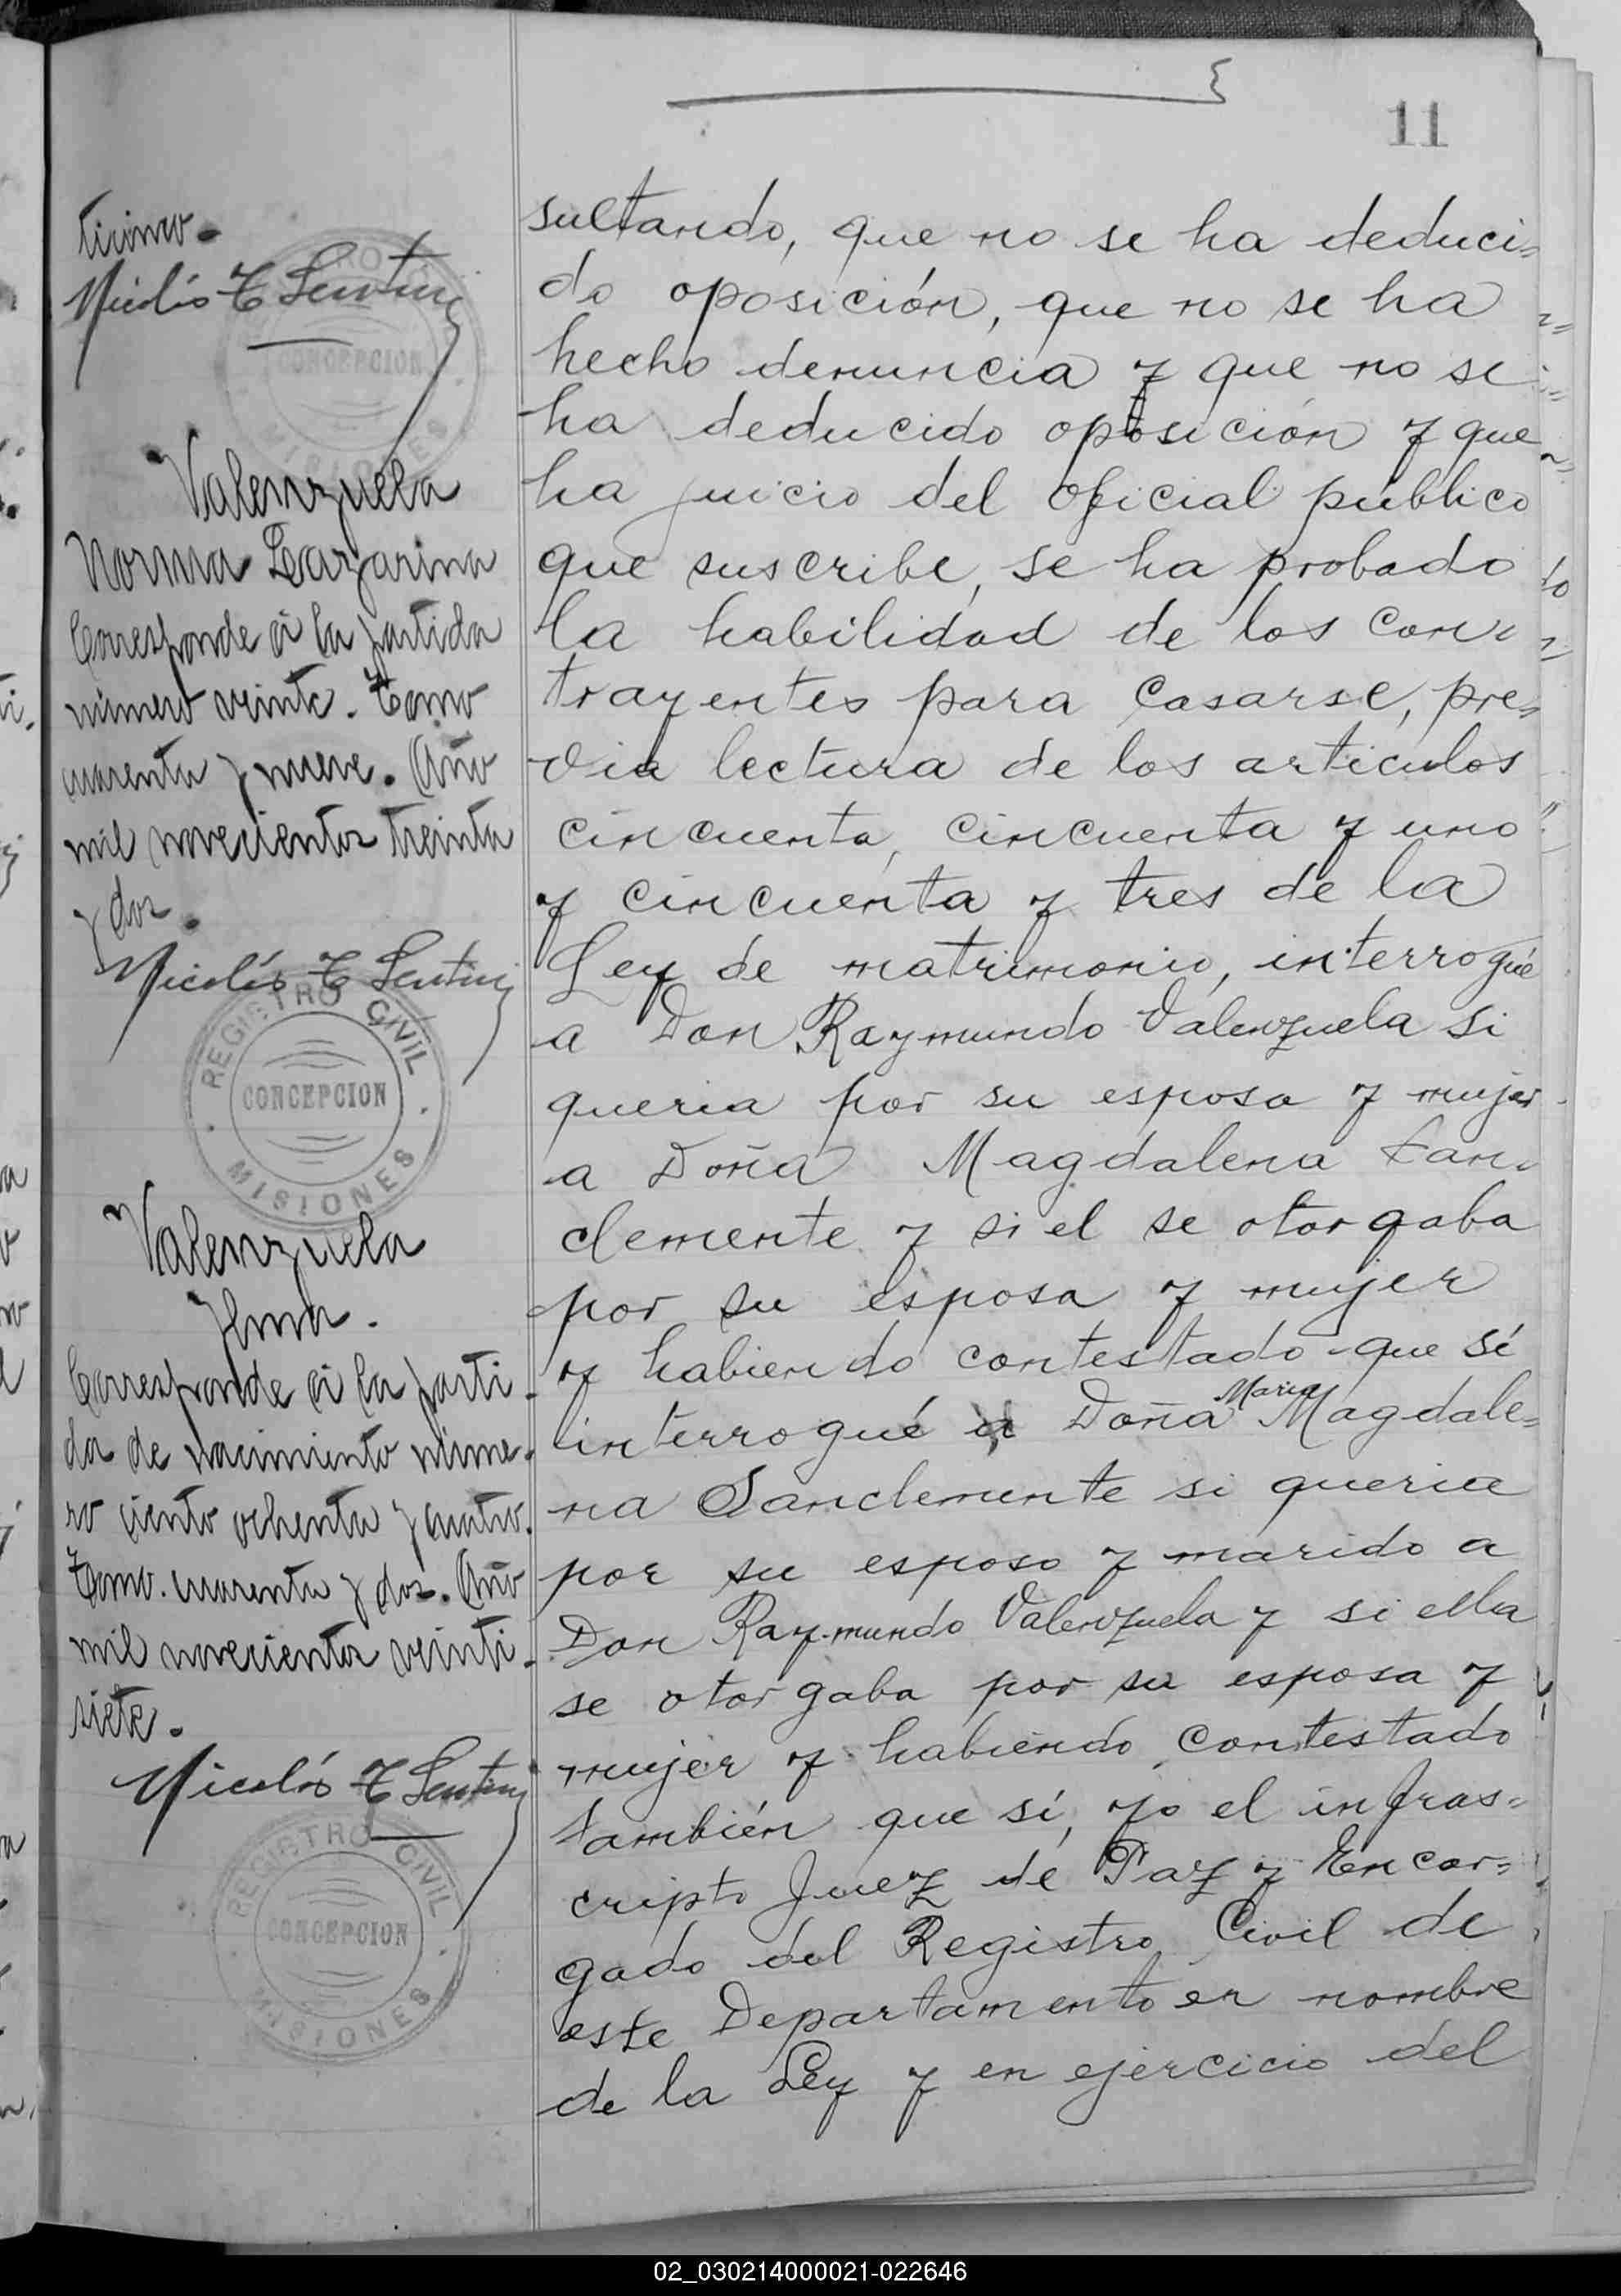 11
ticinco.
Nicolás T Sentini
CONCEPCION
MISIONES
Valenzuela
Norma Lazarina
Corresponde á la partida
número veinte. Tomo
cuarenta y nueve. Año
mil novecientos treinta
y dos.
Nicolás T Sentini
REGISTRO CIVIL
CONCEPCION
MISIONES
Valenzuela
Irma.
Corresponde á la parti-
da de nacimiento núme-
ro ciento ochenta y cuatro.
Tomo. cuarenta y dos. Año
mil novecientos veinti-
siete.
Nicolás T Sentini
REGISTRO CIVIL
CONCEPCION
MISIONES
sultando, que no se ha deduci=
do oposición, que no se ha
hecho denuncia y que no se
ha deducido oposición y que
ha juicio del oficial público
que suscribe, se ha probado
la habilidad de los con=
trayentes para casarse, pre=
via lectura de los articulos
cincuenta, cincuenta y uno
y cincuenta y tres de la
Ley de matrimonio, interrogué
a Don Raymundo Valenzuela si
queria por su esposa y mujer
a Doña Magdalena San=
clemente y si el se otorgaba
por su esposa y mujer
y habiendo contestado que sí
interrogué a Doña Maria Magdale=
na Sanclemente si queria
por su esposo y marido a
Don Raymundo Valenzuela y si ella
se otorgaba por su esposa y
mujer y habiendo contestado
también que sí, yo el infras=
cripto Juez de Paz y Encar=
gado del Registro Civil de
este Departamento en nombre
de la Ley y en ejercicio del
02_030214000021-022646